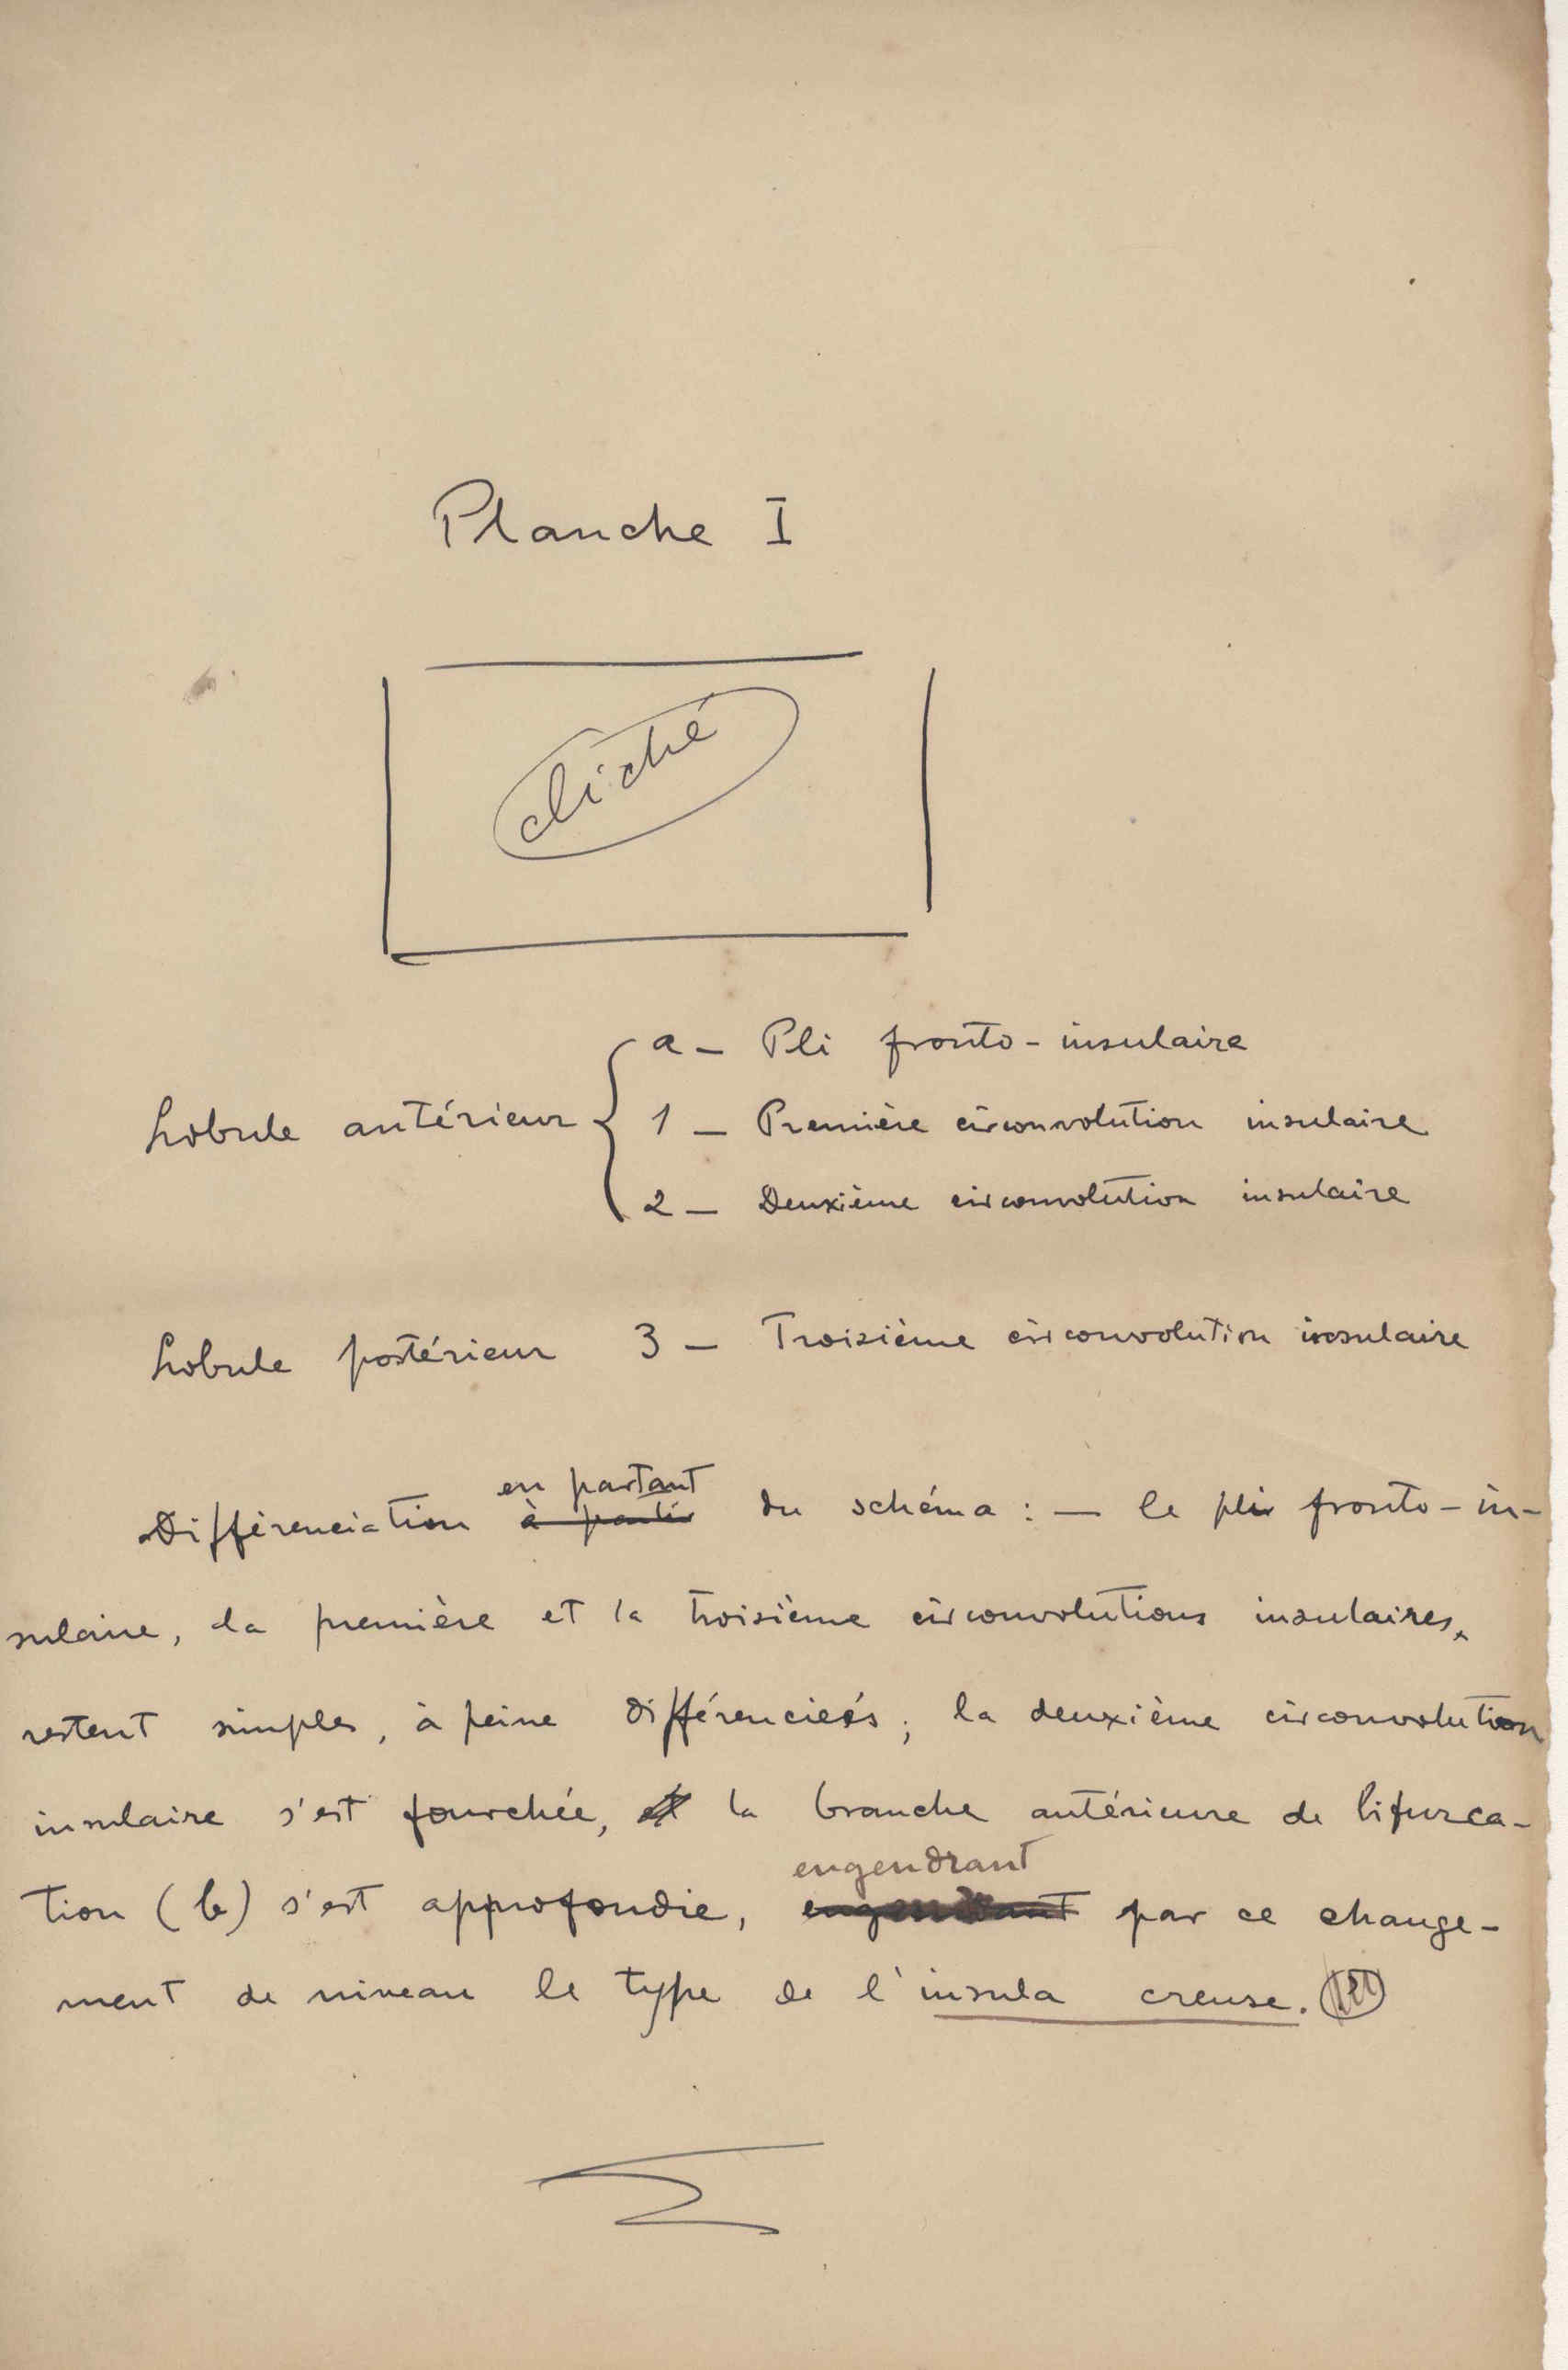 Planche I
cliché
a - Pli fronto-insulaire
Lobule antérieur { 1 - Première circonvolution insulaire
2 - Deuxième circonvolution insulaire
Lobule postérieur 3 - Troisième circonvolution insulaire
en partant
Différenciation à partir du schéma : — le pli fronto-in-
sulaire, la première et la troisième circonvolutions insulaires,
restent simples, à peine différenciées ; la deuxième circonvolution
insulaire s'est fourchée, et la branche antérieure de bifurca-
engendrant
tion (b) s'est approfondie, engendrant par ce change-
ment de niveau le type de l'insula creuse.